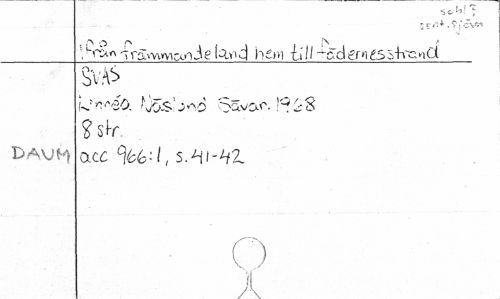 schl?
sent. sjöm
Från främmande land hem till fädernesstrand
SVAS
Linnéa Näslund Sävar. 1968
8 str.
DAUM acc 966:1, s. 41-42